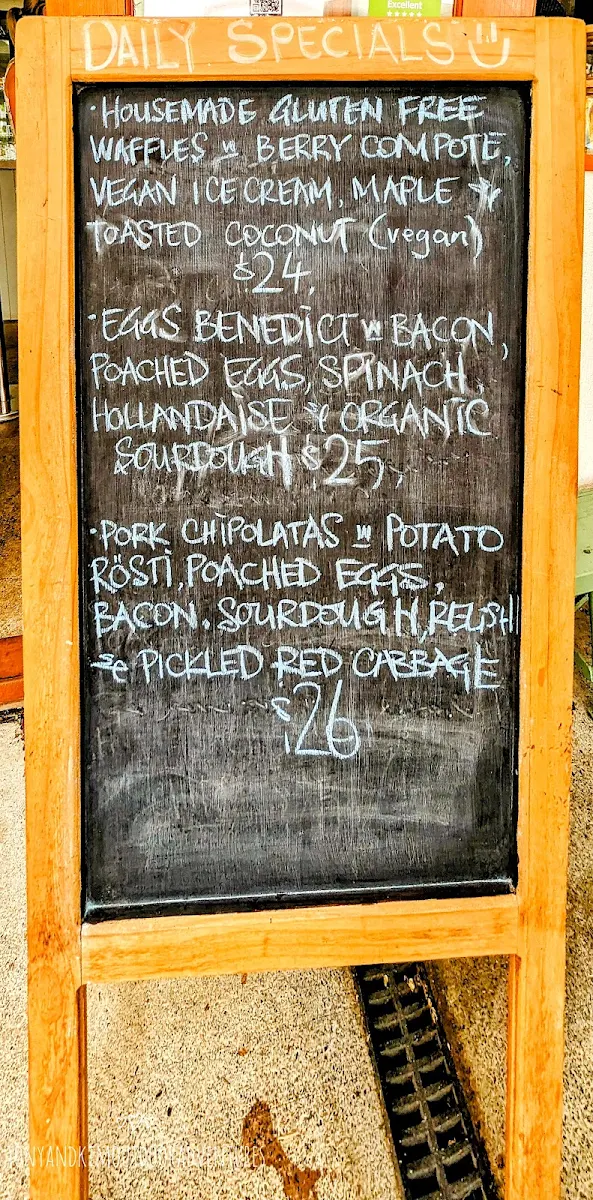 Excellent
DAILY SPECIALS
·HOUSEMADE GLUTEN FREE
WAFFLES w BERRY COMPOTE,
VEGAN ICE CREAM, MAPLE &
TOASTED COCONUT (vegan)
$24.
·EGGS BENEDICT w BACON,
POACHED EGGS, SPINACH,
HOLLANDAISE & ORGANIC
SOURDOUGH $25.
·PORK CHIPOLATAS w POTATO
RÖSTI, POACHED EGGS,
BACON, SOURDOUGH, RELISH
& PICKLED RED CABBAGE
$26